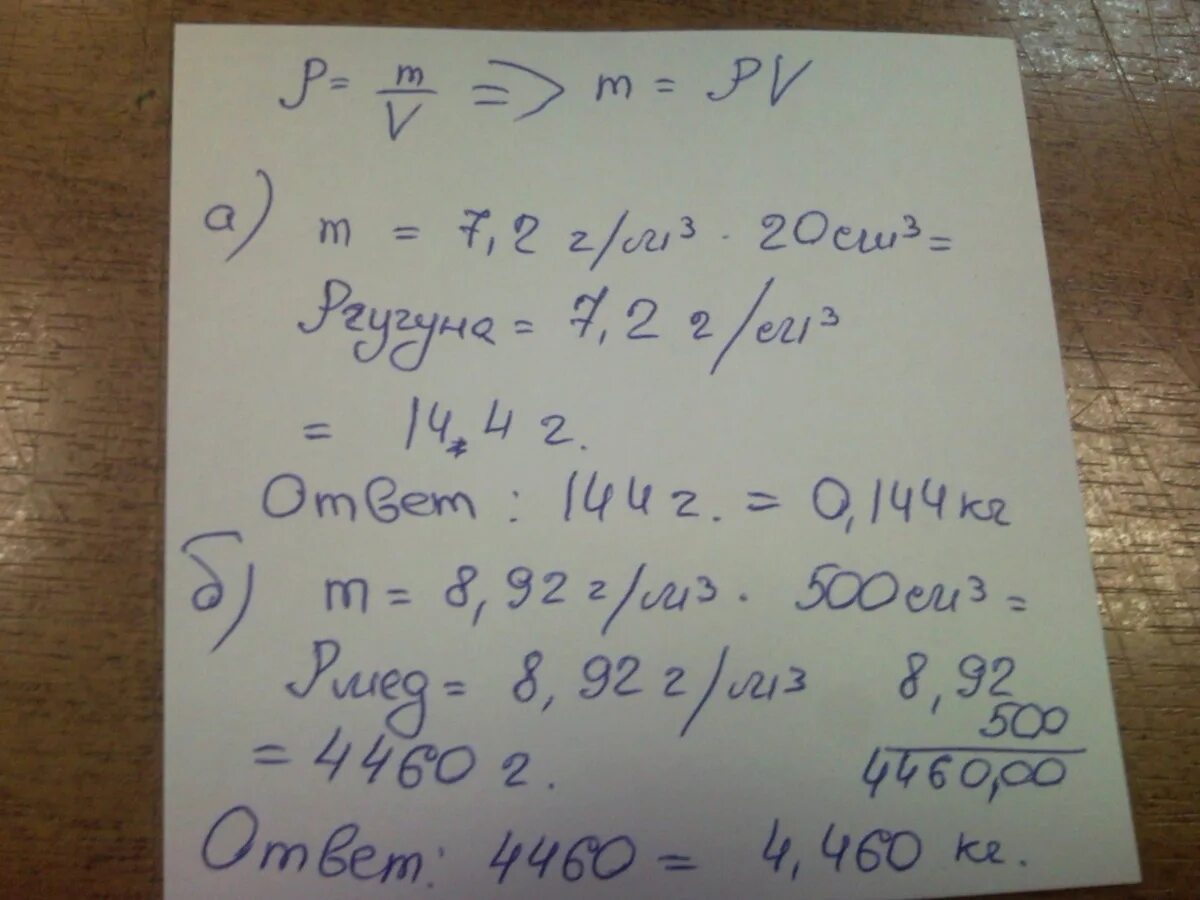 ρ = m/V => m = ρV
а) m = 7,2 г/м³ · 20см³ =
ρчугуна = 7,2 г/см³
= 144 г.
Ответ: 144 г. = 0,144кг
б) m = 8,92 г/м³ · 500см³ =
ρмед = 8,92 г/м³ 8,92
500
= 4460 г. 4460,00
Ответ: 4460 = 4,460 кг.